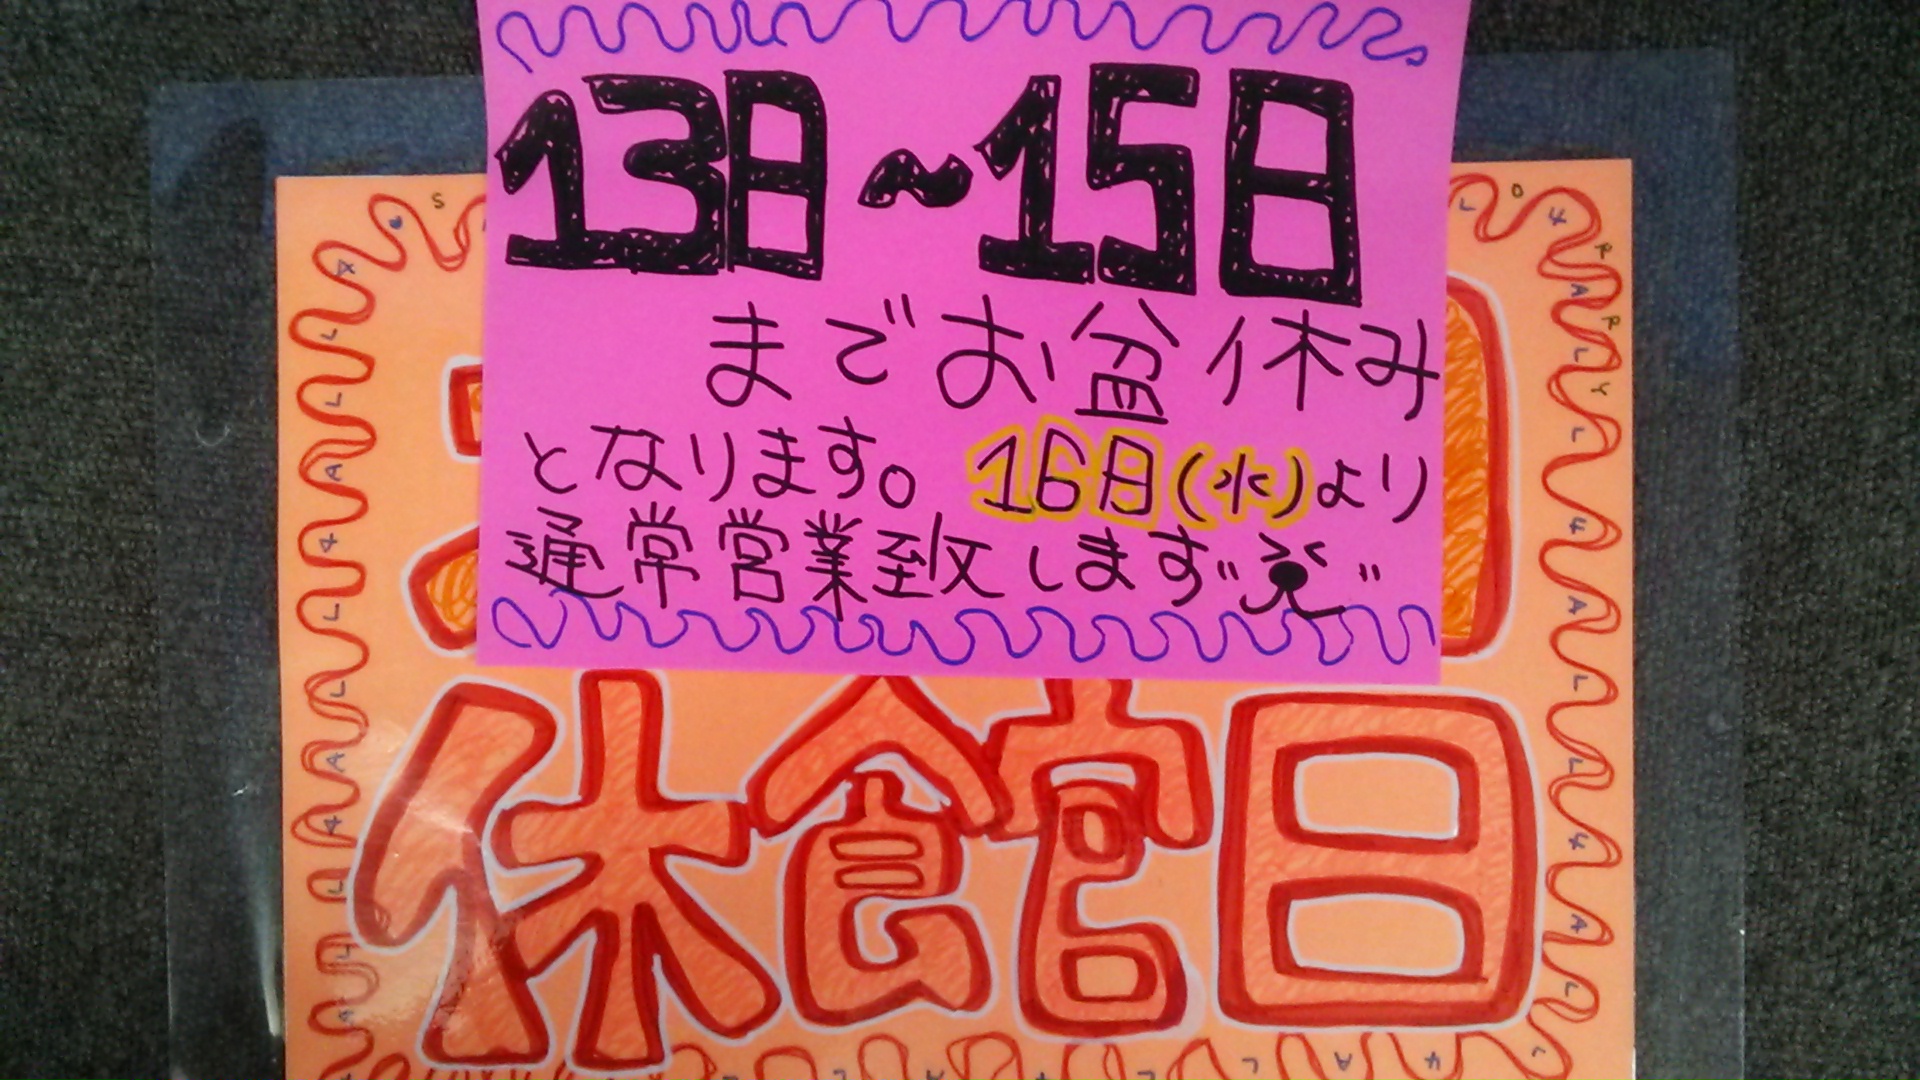 13日～15日
までお盆休み
となります。16日(水)より
通常営業致します
休館日